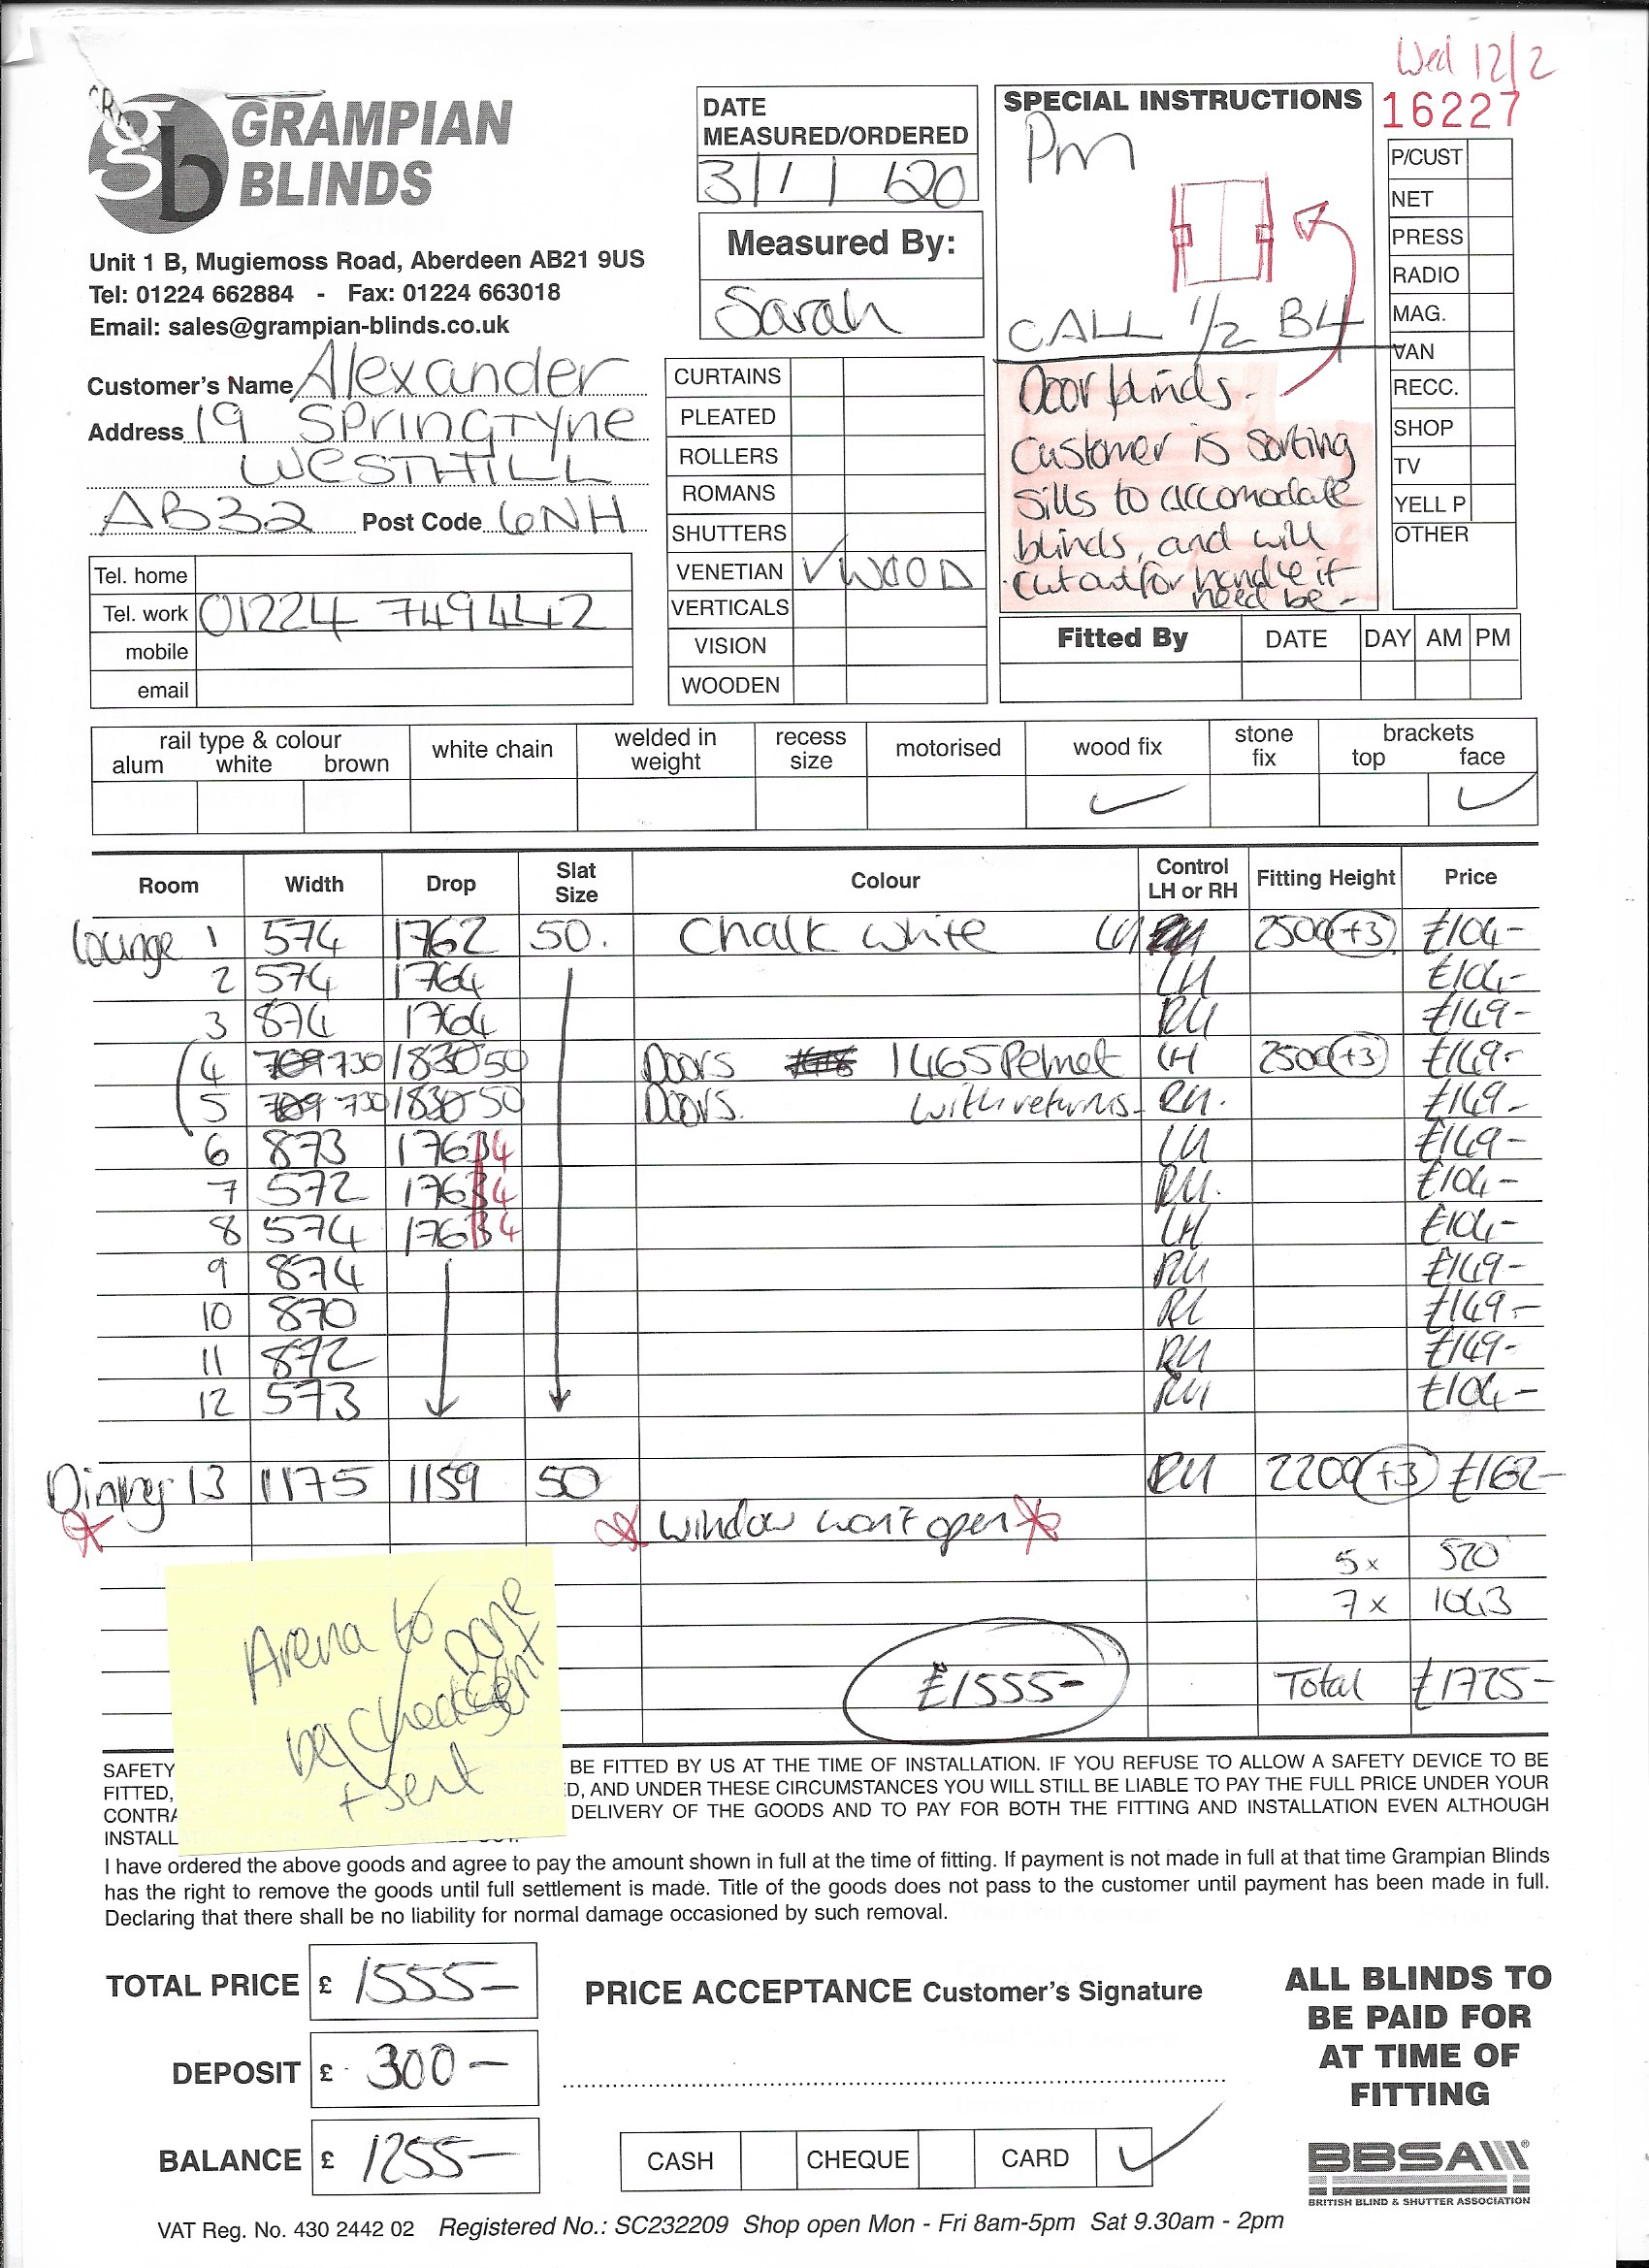 Wed 12/2
16227
GRAMPIAN
BLINDS
Unit 1 B, Mugiemoss Road, Aberdeen AB21 9US
Tel: 01224 662884 - Fax: 01224 663018
Email: sales@grampian-blinds.co.uk
Customer's Name Alexander
Address 19 Springtyne
WESTHILL
AB32 Post Code 6NH
Tel. home
Tel. work 01224 749442
mobile
email
DATE
MEASURED/ORDERED
31/1/20
Measured By:
Sarah
CURTAINS
PLEATED
ROLLERS
ROMANS
SHUTTERS
VENETIAN ✓ WOOD
VERTICALS
VISION
WOODEN
SPECIAL INSTRUCTIONS
Pm
CALL 1/2 B4
Door blinds.
Customer is sorting
sills to accomodate
blinds, and will
cut out for handle if
need be -
P/CUST
NET
PRESS
RADIO
MAG.
VAN
RECC.
SHOP
TV
YELL P
OTHER
Fitted By DATE DAY AM PM
rail type & colour white chain welded in weight recess size motorised wood fix stone fix brackets
alum white brown top face
✓ ✓
Room Width Drop Slat Size Colour Control LH or RH Fitting Height Price
Lounge 1 574 1762 50. Chalk White LH 2500 +3 £104-
2 574 1764 LH £104-
3 874 1764 RH £149-
4 709 730 1830 50 Doors 1465 Pelmet LH 2500 +3 £149-
5 709 730 1830 50 Doors. with returns- RH. £149-
6 873 1763 4 LH £149-
7 572 1763 4 RH. £104-
8 574 1763 4 LH £104-
9 874 RH £149-
10 870 RL £149-
11 872 RH £149-
12 573 RH £104-
Dining 13 1175 1159 50 RH 2200 +3 £162-
window won't open
5x 520
7x 1043
£1555- Total £1725-
Arena to
be checked
+ sent
Done
sent
SAFETY BE FITTED BY US AT THE TIME OF INSTALLATION. IF YOU REFUSE TO ALLOW A SAFETY DEVICE TO BE
FITTED, D, AND UNDER THESE CIRCUMSTANCES YOU WILL STILL BE LIABLE TO PAY THE FULL PRICE UNDER YOUR
CONTRA DELIVERY OF THE GOODS AND TO PAY FOR BOTH THE FITTING AND INSTALLATION EVEN ALTHOUGH
INSTALL
I have ordered the above goods and agree to pay the amount shown in full at the time of fitting. If payment is not made in full at that time Grampian Blinds
has the right to remove the goods until full settlement is made. Title of the goods does not pass to the customer until payment has been made in full.
Declaring that there shall be no liability for normal damage occasioned by such removal.
TOTAL PRICE £ 1555-
DEPOSIT £ 300-
BALANCE £ 1255-
PRICE ACCEPTANCE Customer's Signature
CASH CHEQUE CARD ✓
ALL BLINDS TO
BE PAID FOR
AT TIME OF
FITTING
BBSA
BRITISH BLIND & SHUTTER ASSOCIATION
VAT Reg. No. 430 2442 02 Registered No.: SC232209 Shop open Mon - Fri 8am-5pm Sat 9.30am - 2pm